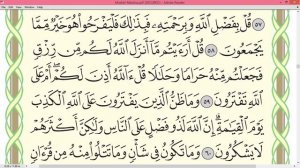 Mushaf Madinah.pdf (SECURED) - Adobe Reader
٥٧ قُلْ بِفَضْلِ ٱللَّهِ وَبِرَحْمَتِهِۦ فَبِذَٰلِكَ فَلْيَفْرَحُوا۟ هُوَ خَيْرٌ مِّمَّا
يَجْمَعُونَ ٥٨ قُلْ أَرَءَيْتُم مَّآ أَنزَلَ ٱللَّهُ لَكُم مِّن رِّزْقٍ
فَجَعَلْتُم مِّنْهُ حَرَامًا وَحَلَٰلًا قُلْ ءَآللَّهُ أَذِنَ لَكُمْ ۖ أَمْ عَلَى
ٱللَّهِ تَفْتَرُونَ ٥٩ وَمَا ظَنُّ ٱلَّذِينَ يَفْتَرُونَ عَلَى ٱللَّهِ ٱلْكَذِبَ
يَوْمَ ٱلْقِيَٰمَةِ ۗ إِنَّ ٱللَّهَ لَذُو فَضْلٍ عَلَى ٱلنَّاسِ وَلَٰكِنَّ أَكْثَرَهُمْ
لَا يَشْكُرُونَ ٦٠ وَمَا تَكُونُ فِى شَأْنٍ وَمَا تَتْلُوا۟ مِنْهُ مِن قُرْءَانٍ